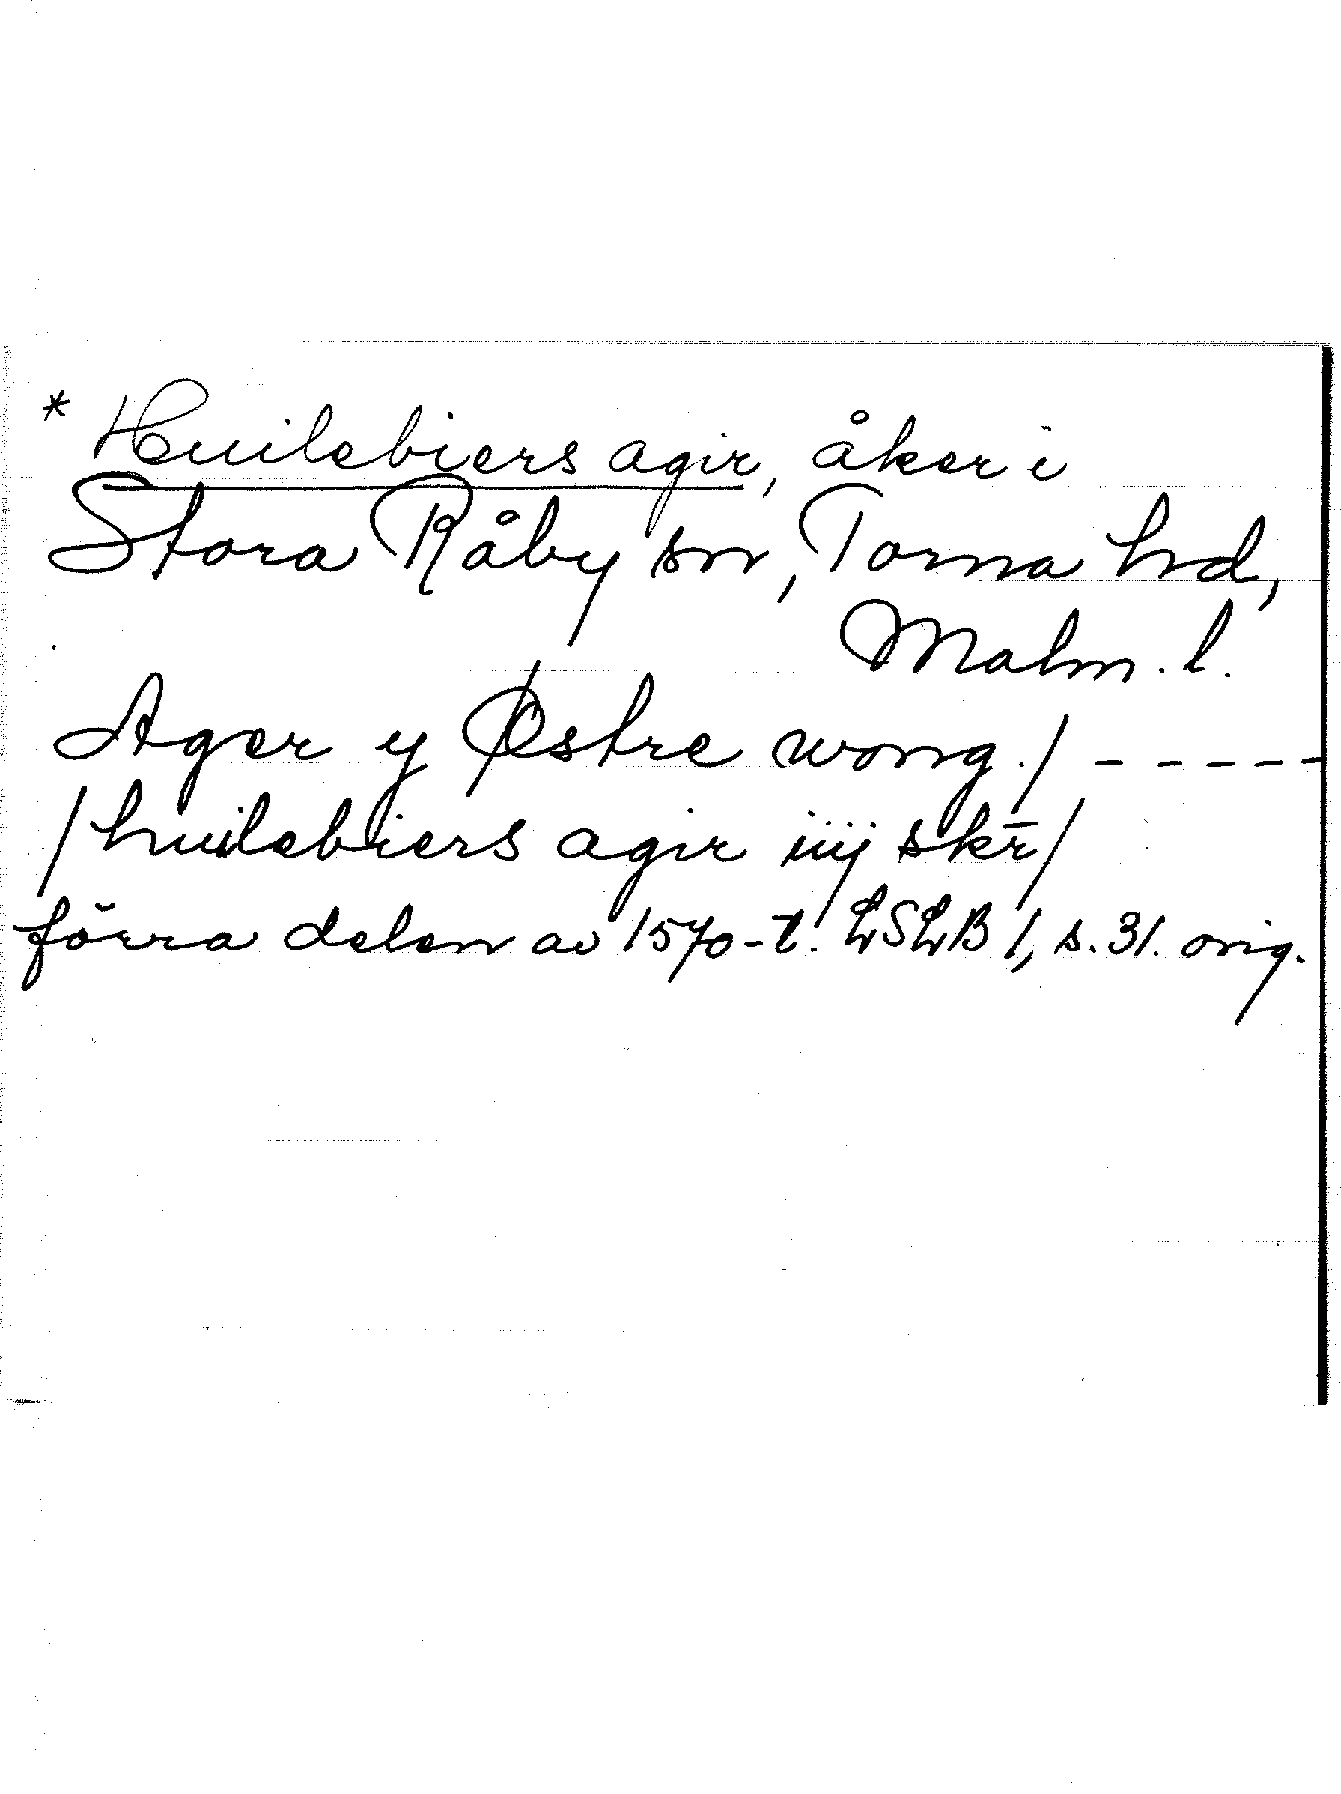 * Huilebiers agir, åker i
Stora Råby sn, Torna hd,
Malm. l.
Ager y Østre wong. / - - - - -
/ huilebiers agir iiij skr̄ /
förra delen av 1570-t. LSLB 1, s. 31. orig.